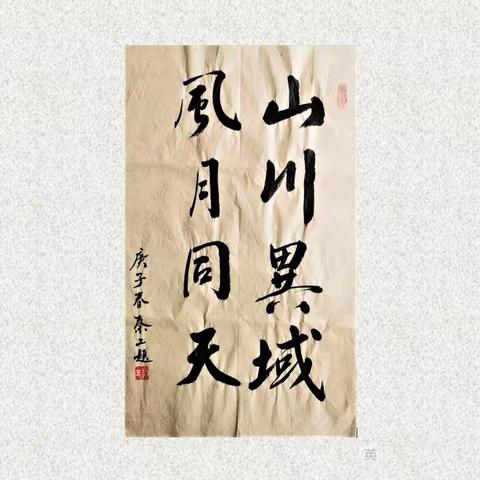 山川異域
風月同天
庚子春秦工題
英